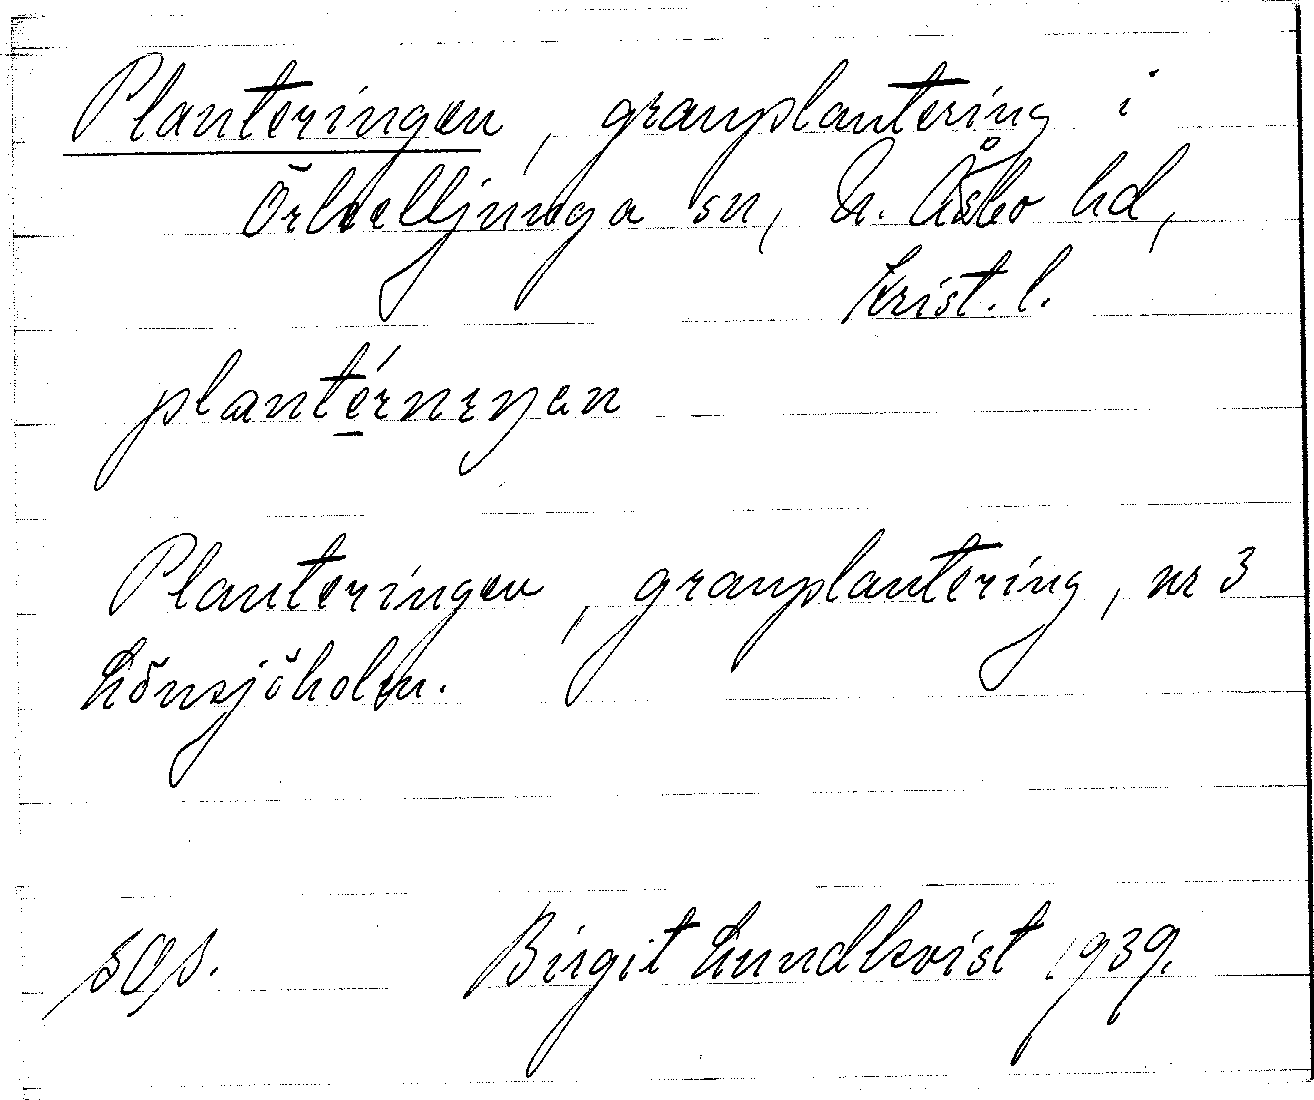 Planteringen, granplantering i
Örkelljunga sn, N. Åsbo hd,
Krist. l.
Planteringen, granplantering, nr 3
Lönsjöholm.
Birgit Lundkvist 1939.